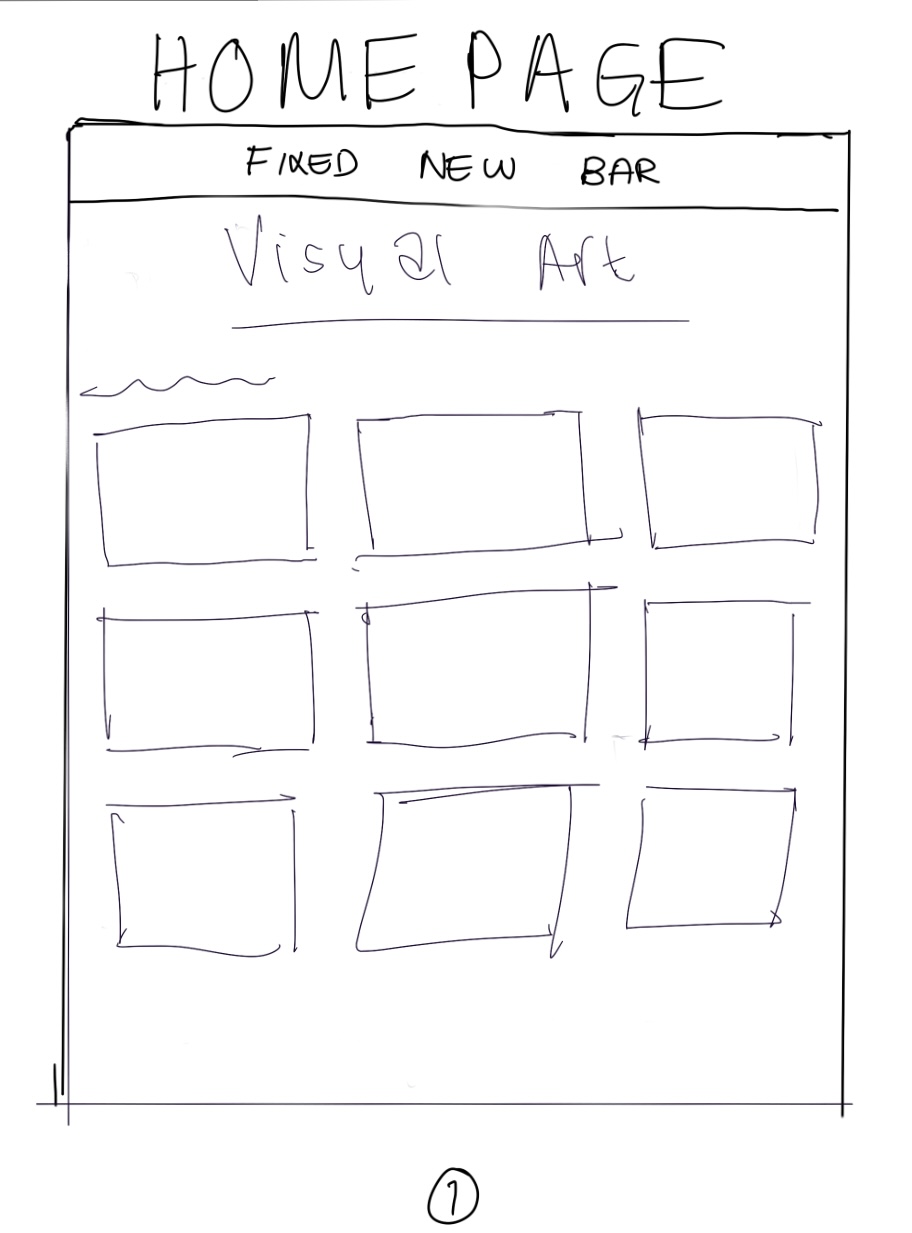 HOME PAGE
FIXED NEW BAR
Visual Art
1